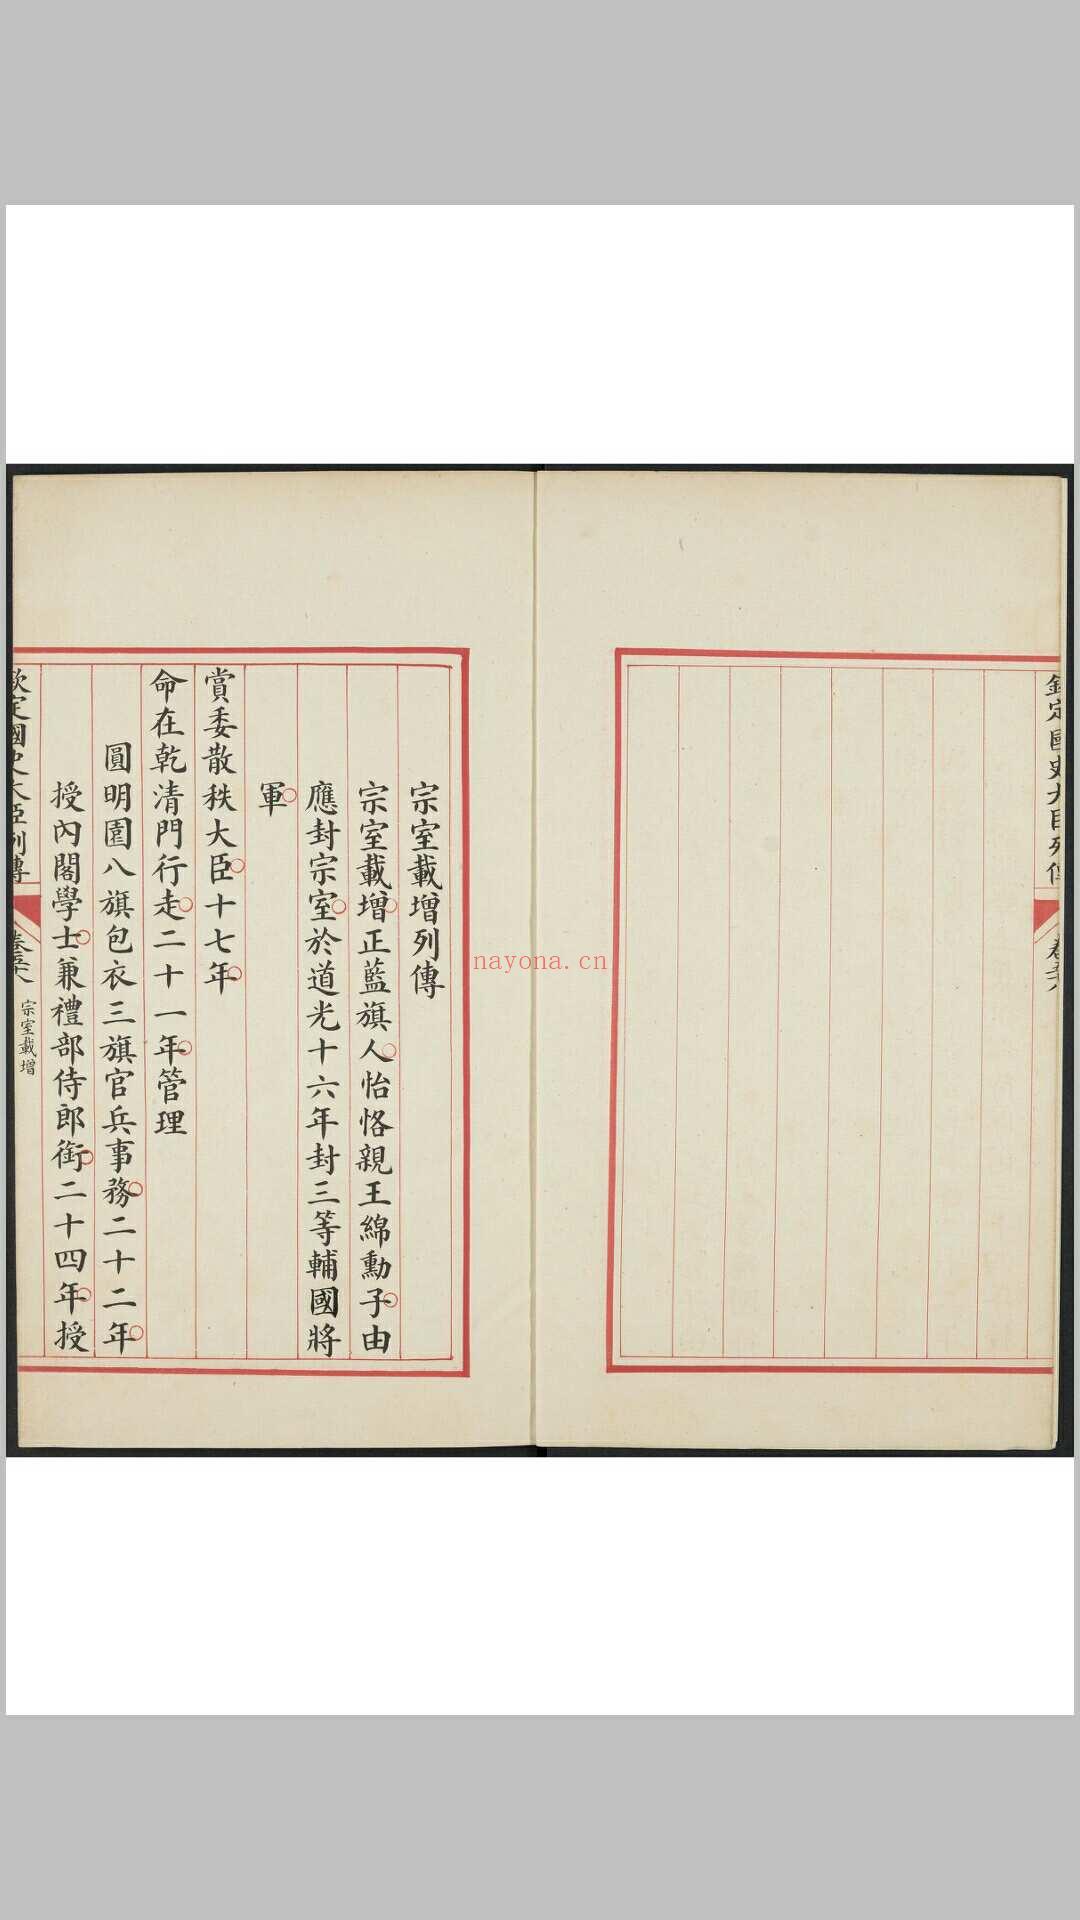 宗室載增列傳
宗室載增正藍旗人怡恪親王綿勳子由
應封宗室於道光十六年封三等輔國將
軍
賞委散秩大臣十七年
命在乾清門行走二十一年管理
圓明園八旗包衣三旗官兵事務二十二年
授內閣學士兼禮部侍郎銜二十四年授
欽定國史大臣列傳
宗室載增
欽定國史大臣列傳
nayona.cn